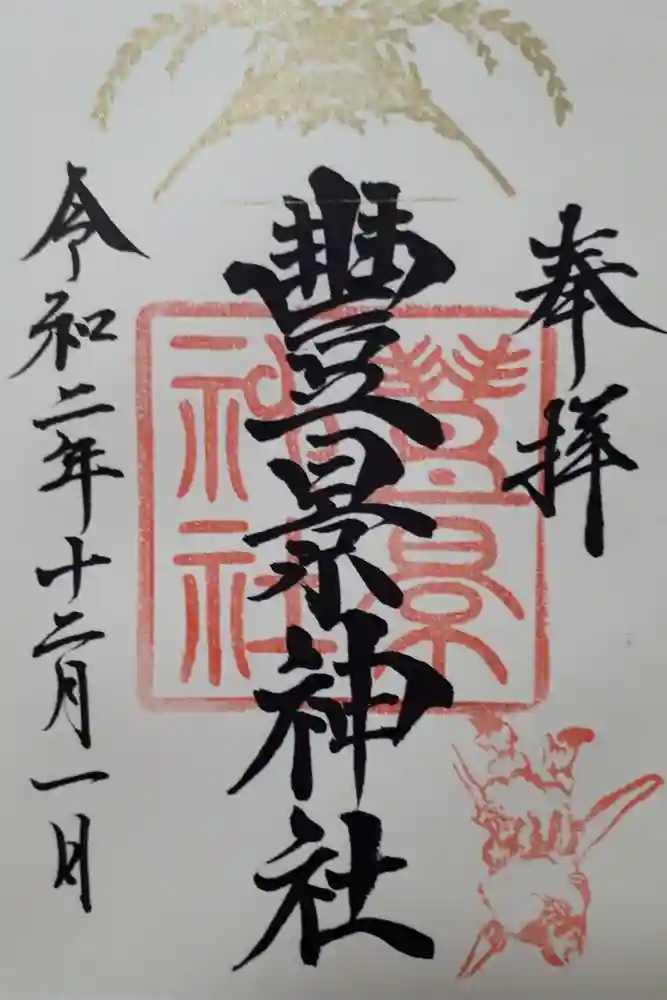 奉拝
豐景神社
豐景
神社
令和二年十二月一日